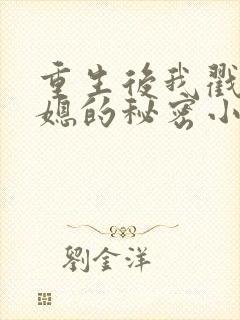 重生後我戳
媳的秘密小
劉金洋